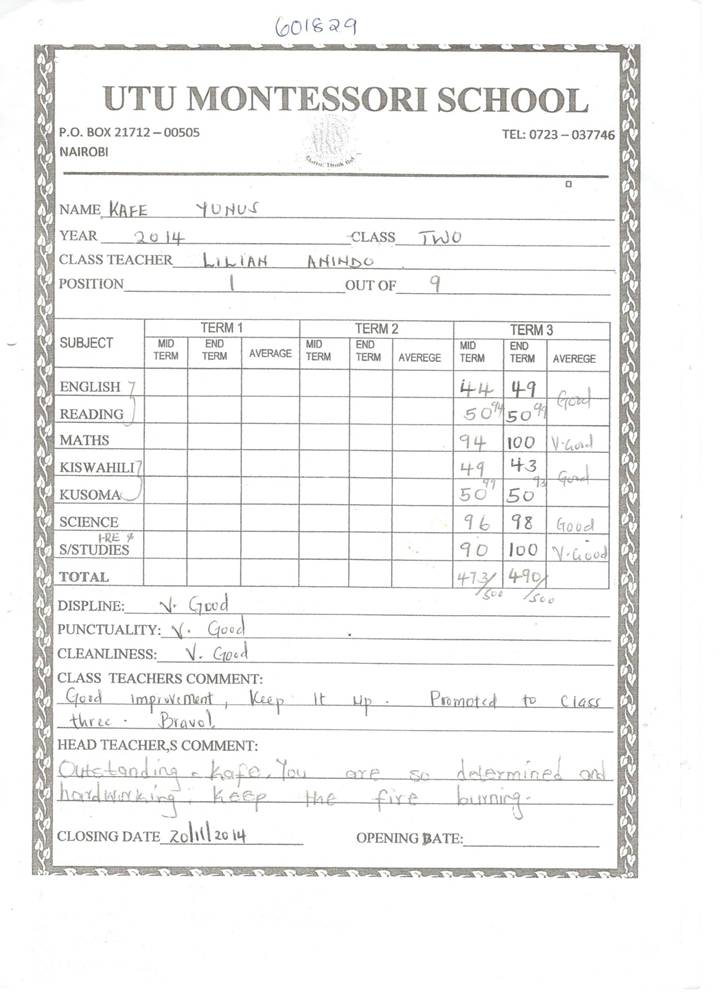 601829
UTU MONTESSORI SCHOOL
P.O. BOX 21712 – 00505 TEL: 0723 – 037746
NAIROBI
NAME KAFE YUNUS
YEAR 2014 CLASS TWO
CLASS TEACHER LILIAN ANINDO
POSITION 1 OUT OF 9
SUBJECT TERM 1 TERM 2 TERM 3
MID TERM END TERM AVERAGE MID TERM END TERM AVEREGE MID TERM END TERM AVEREGE
ENGLISH 44 49 Good
READING 50 94 50 99
MATHS 94 100 V.Good
KISWAHILI 49 43 Good
KUSOMA 50 99 50 93
SCIENCE 96 98 Good
I-RE &
S/STUDIES 90 100 V.Good
TOTAL 473/500 490/500
DISPLINE: V. Good
PUNCTUALITY: V. Good
CLEANLINESS: V. Good
CLASS TEACHERS COMMENT:
Good improvement, Keep it up. Promoted to class
three. Bravo!
HEAD TEACHER,S COMMENT:
Outstanding - Kafe. You are so determined and
hardworking. Keep the fire burning.
CLOSING DATE 20/11/2014 OPENING DATE: